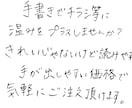 手書きでチラシ等に
温かを プラスしませんか?
きれいじゃないけど読みやす
手が出しやすい価格で
気軽にご注文頂けます。